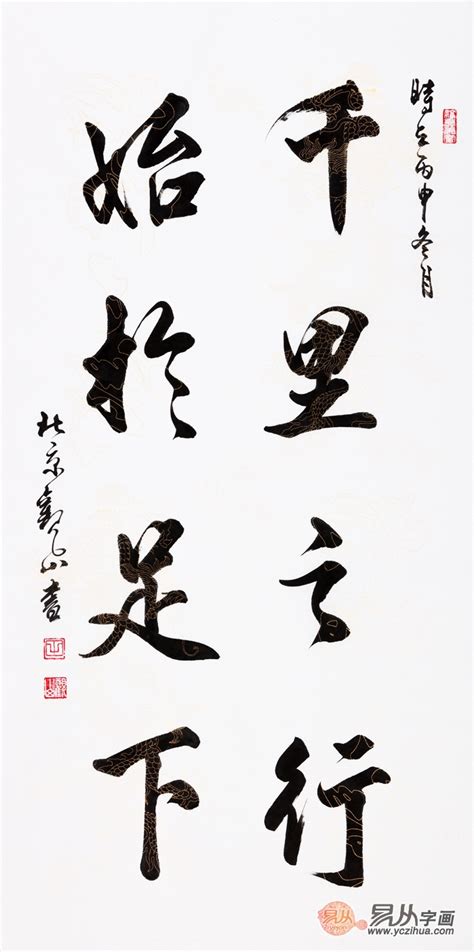 時在丙申冬月
千里之行
始於足下
北京觀山書
易从
易从字画
www.yczihua.com